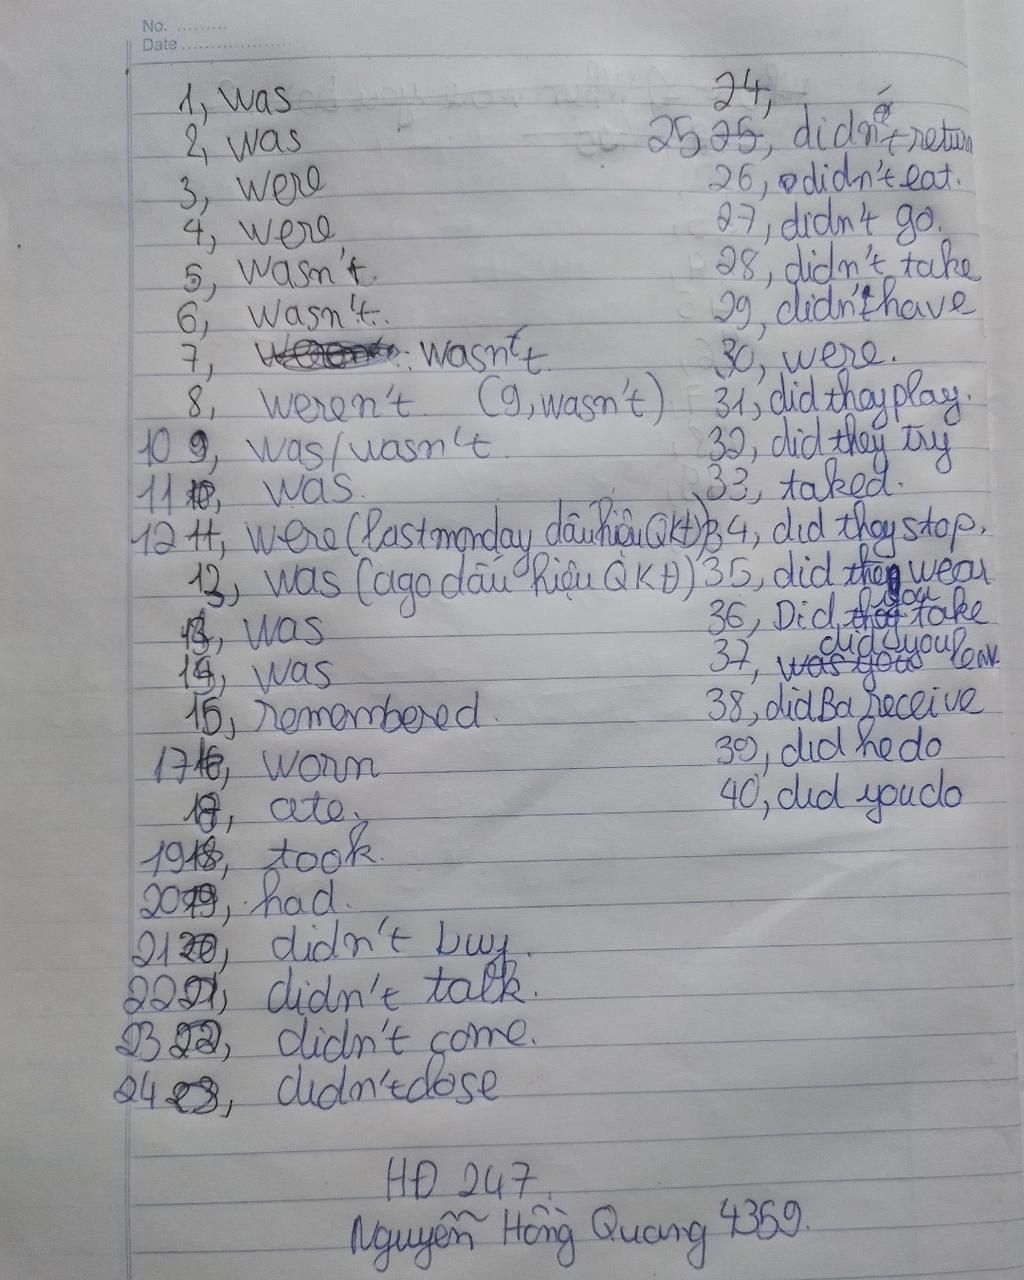 No. .........
Date ...................
1, was
2, was
3, were
4, were
5, wasn't.
6, wasn't.
7, wasn't.
8, weren't (9, wasn't)
10 9, was/wasn't.
11 10, was.
12 11, were (last monday dấu hiệu QKĐ)
13, was (ago dấu hiệu QKĐ)
was
was
remembered.
17 16, worn
ate.
19 18, took.
20 19, had.
21 20, didn't buy.
22 21, didn't talk.
23 22, didn't come.
24 23, didn't close
24,
25 25, didn't return
26, didn't eat.
27, didn't go.
28, didn't take
29, didn't have
30, were.
31, did they play.
32, did they try
33, taked.
34, did they stop.
35, did they wear
36, Did you take
37, did you leave
38, did Ba receive
39, did he do
40, did you do
HĐ 247.
Nguyễn Hồng Quang 4359.